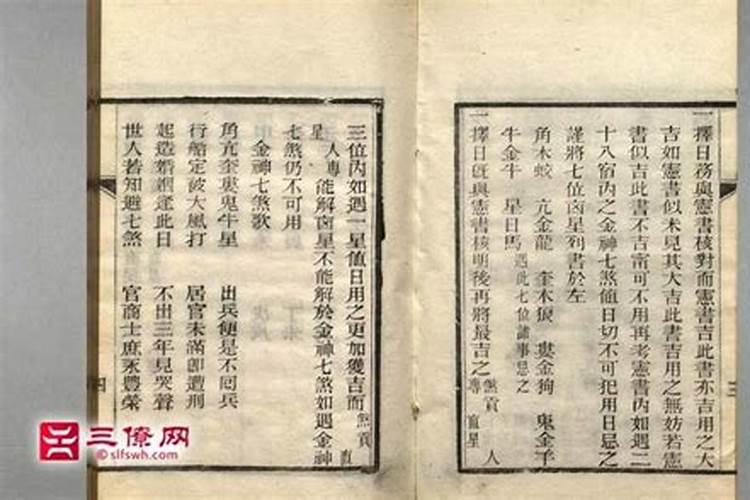 一擇日務與憲書核對而憲書吉此書亦吉用之大
吉如憲書似未見其大吉此書吉用之無妨若憲
書似吉此書不吉甯可不用再考憲書內如遇二
十八宿內之金神七煞値日切不可犯用日忌之
謹將七位凶星列書於左
角木蛟 亢金龍 奎木狼 婁金狗 鬼金羊
牛金牛 星日馬 遇此七位諸事忌之
一擇日旣與憲書核明後再將最吉之 煞貢 專 直星 人
三
三位內如遇一星値日用之更加獲吉而 煞貢 直
星 人專 能解凶星不能解於金神七煞如遇金神
七煞仍不可用
金神七煞歌
角亢奎婁鬼牛星 出兵便是不回兵
行船定被大風打 居官未滿卽遭刑
起造婚姻逢此日 不出三年見哭聲
世人若知避七煞 官商士庶永豐榮
四
三僚网
©slfswh.com